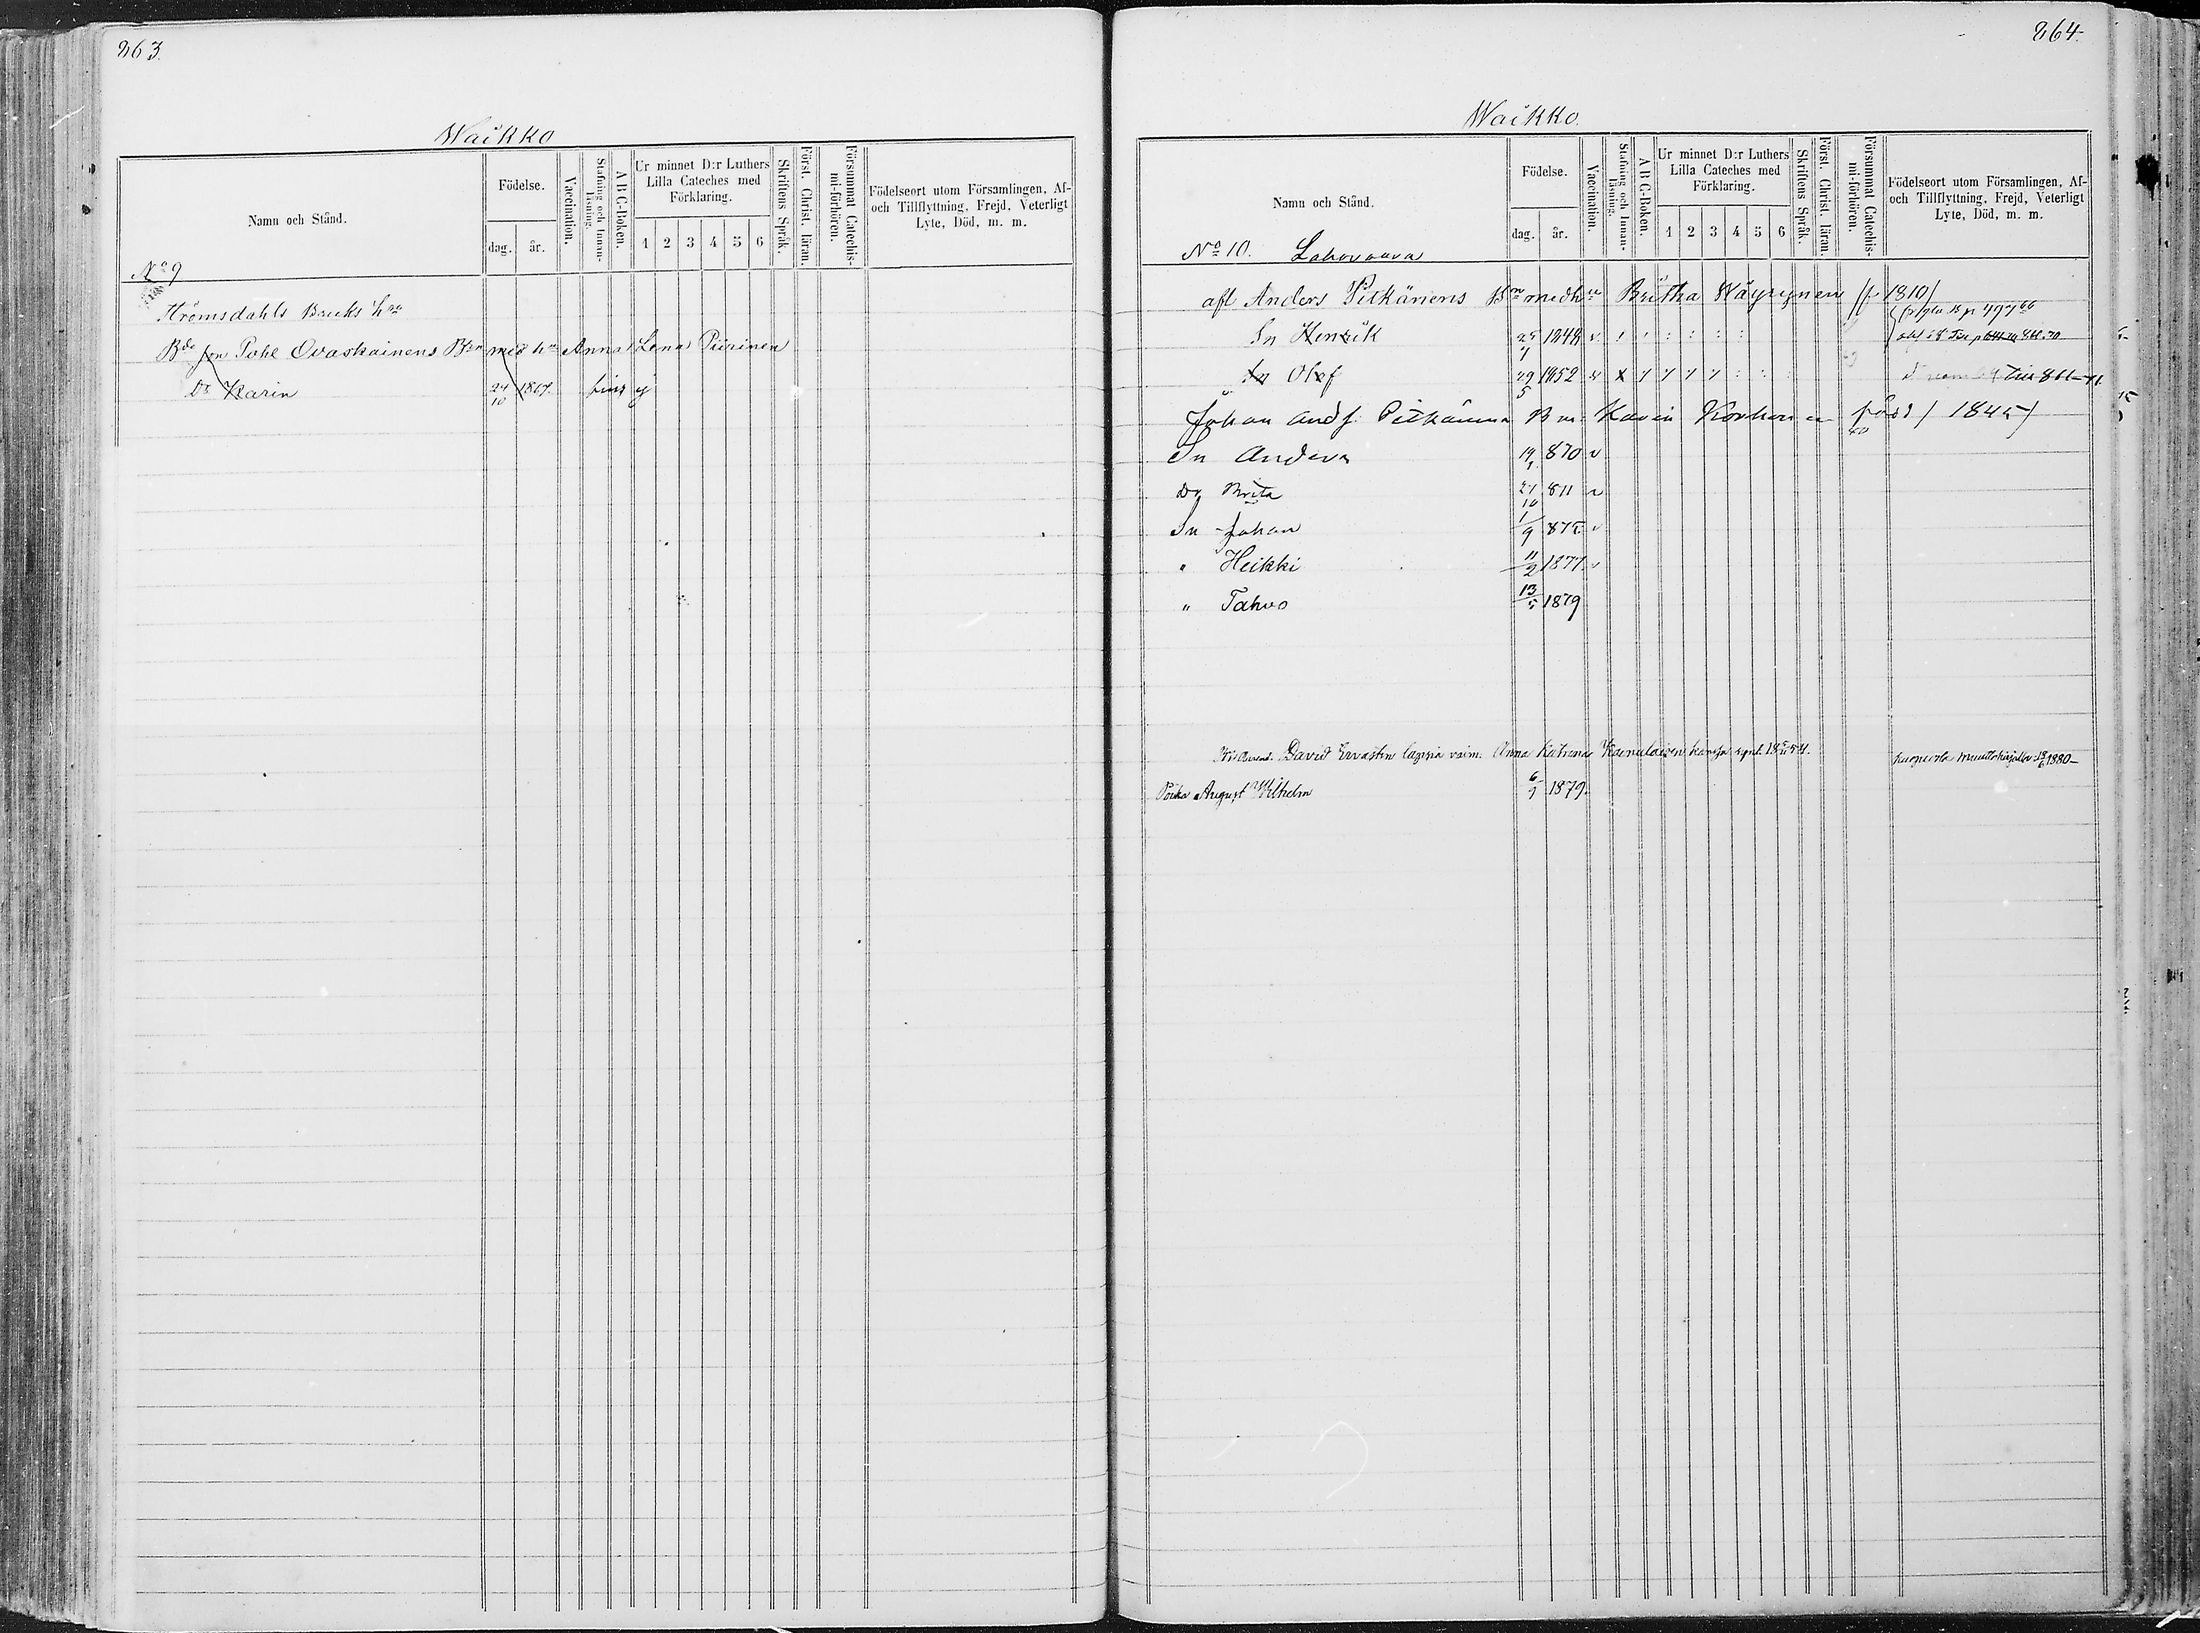 863.
Waikko
Namn och Stånd.
Födelse.
dag. år.
Vaccination.
Stafning och Innan-läsning.
A B C-Boken.
Ur minnet D:r Luthers Lilla Cateches med Förklaring.
1 2 3 4 5 6
Skriftens Språk.
Först. Christ. läran.
Försummat Catechis-mi-förhören.
Födelseort utom Församlingen, Af- och Tillflyttning, Frejd, Veterligt Lyte, Död, m. m.
No 9
Strömsdahls Bruks
Bde Ovaskainens med hu Anna Lena Piirinen
Dr Karin 24/10 1867. ej
864.
Waikko.
Namn och Stånd.
Födelse.
dag. år.
Vaccination.
Stafning och Innan-läsning.
A B C-Boken.
Ur minnet D:r Luthers Lilla Cateches med Förklaring.
1 2 3 4 5 6
Skriftens Språk.
Först. Christ. läran.
Försummat Catechis-mi-förhören.
Födelseort utom Församlingen, Af- och Tillflyttning, Frejd, Veterligt Lyte, Död, m. m.
No 10. Lahovaara
afl Anders Pitkänens med hu Britha Wäyrynen /f 1810/
Sn Henrik 1848 v
Sn Olof 29/5 1852 v
Johan Andf. Pitkänen Karin Korhonen född / 1845/
Sn Anders 870 v
Dr Brita 27/10 811 v
Sn Johan 1/9 875 v
" Heikki 11/2 1877 v
" Tahvo 13/5 1879
David Ervastin vaim. Anna Katrina kanssa synt.
muuttokirjalla 1880
Poika August Wilhelm 1879.